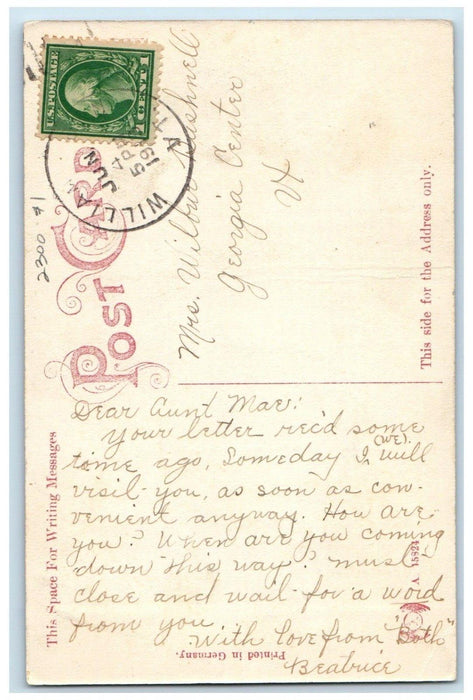 POST CARD
This Space For Writing Messages
This side for the Address only.
U.S. POSTAGE
1 CENT 1
JUN
2300 #1
Mrs. Wilbur Bushnell
Georgia Center
Vt
Dear Aunt Mae:
Your letter rec'd some
tome ago, Someday I, (WE). will
visit you, as soon as con-
venient anyway. How are
you? When are you coming
down this way? must
close and wait for a word
from you
With love from "Both"
Beatrice
A 15824
Printed in Germany.